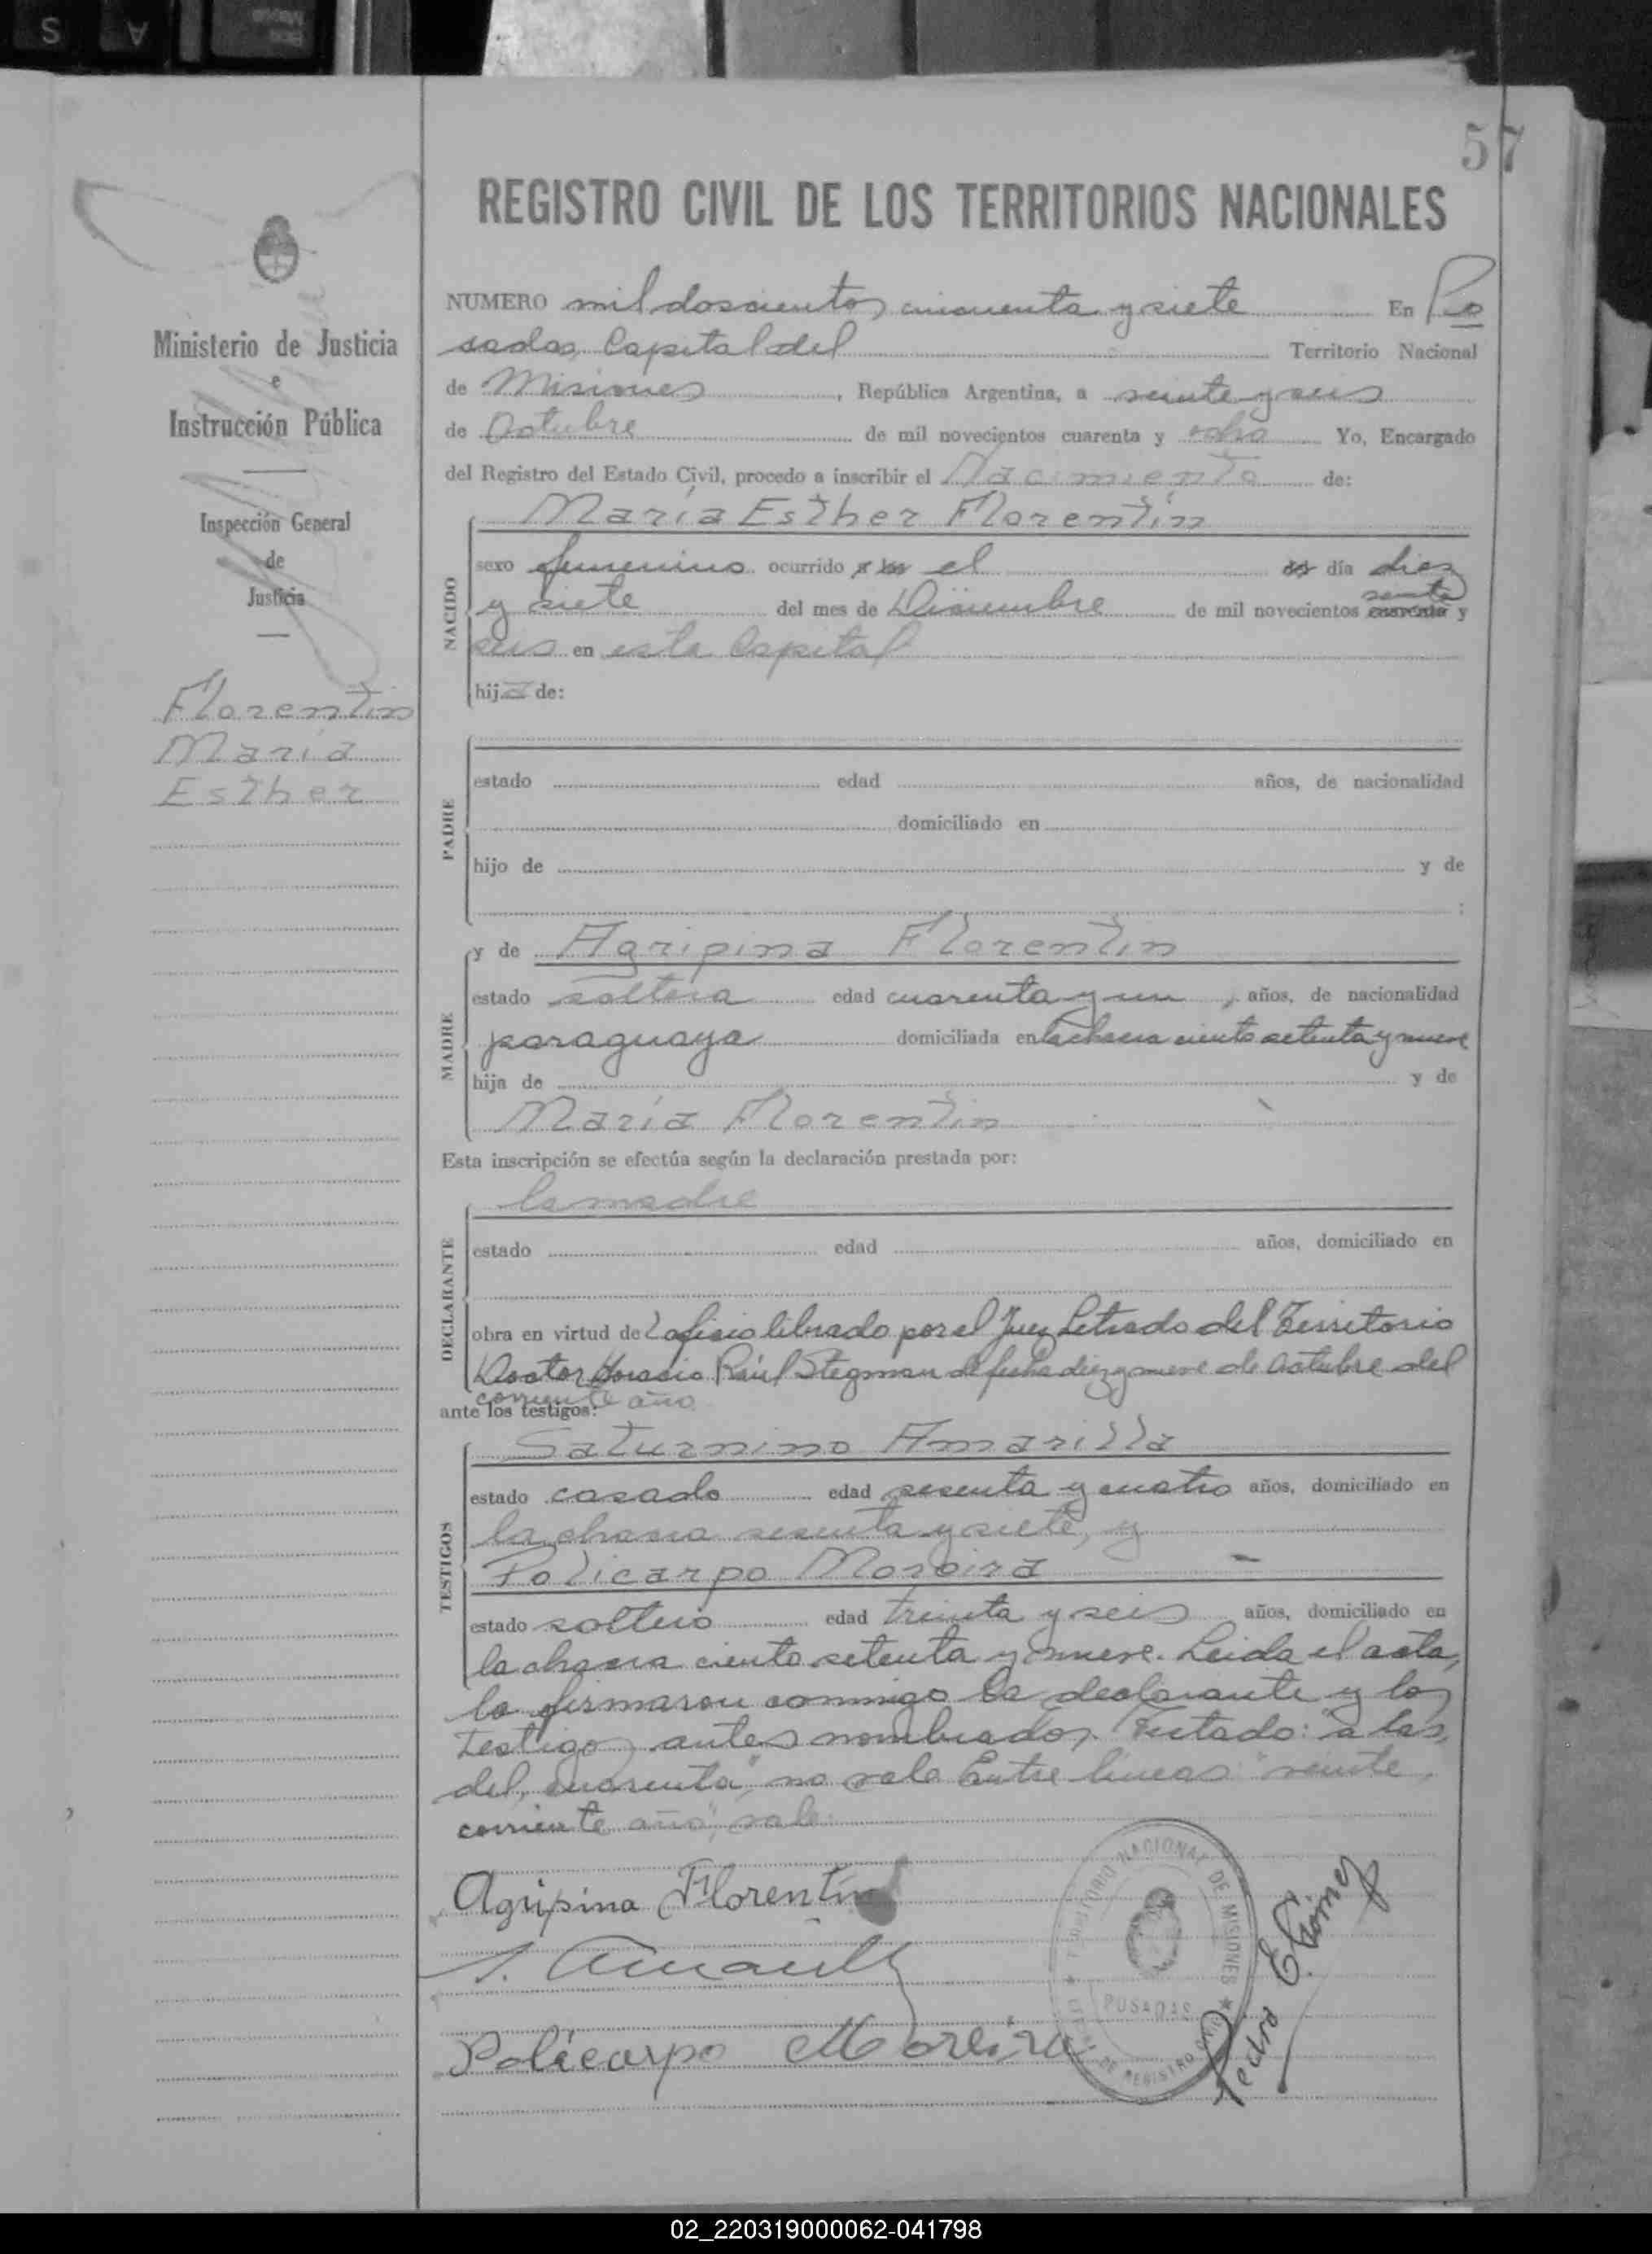 57
REGISTRO CIVIL DE LOS TERRITORIOS NACIONALES
Ministerio de Justicia
e
Instrucción Pública
Inspección General
de
Justicia
Florentin
Maria
Esther
NUMERO mil doscientos cincuenta y siete En Po
sadas, Capital del Territorio Nacional
de Misiones, República Argentina, a veinte y seis
de Octubre de mil novecientos cuarenta y ocho Yo, Encargado
del Registro del Estado Civil, procedo a inscribir el Nacimiento de:
María Esther Florentín
NACIDO
sexo femenino ocurrido a las el del día diez
veinte
y siete del mes de Diciembre de mil novecientos cuarenta y
seis en esta Capital
hija de:
PADRE
estado edad años, de nacionalidad
domiciliado en
hijo de y de
;
MADRE
y de Agripina Florentin
estado soltera edad cuarenta y un, años, de nacionalidad
paraguaya domiciliada en la chacra ciento setenta y nueve
hija de y de
María Florentin
Esta inscripción se efectúa según la declaración prestada por:
DECLARANTE
la madre
estado edad años, domiciliado en
obra en virtud del oficio librado por el Juez Letrado del Territorio
Doctor Horacio Raúl Stegman de fecha diez y nueve de Octubre del
corriente año
ante los testigos:
TESTIGOS
Saturnino Amarilla
estado casado edad sesenta y cuatro años, domiciliado en
la chacra sesenta y siete, y
Policarpo Moreira
estado soltero edad treinta y seis años, domiciliado en
la chacra ciento setenta y nueve. Leida el acta,
la firmaron conmigo la declarante y los
testigos antes nombrados. Testado: "a las,
del, cuarenta", no vale Entre lineas: "veinte,
corriente año", vale.
Agripina Florentín
S. Amarilla
Policarpo Moreira
TERRITORIO NACIONAL DE MISIONES
POSADAS
DE REGISTRO CIVIL
Pedro E. Gimez
02_220319000062-041798